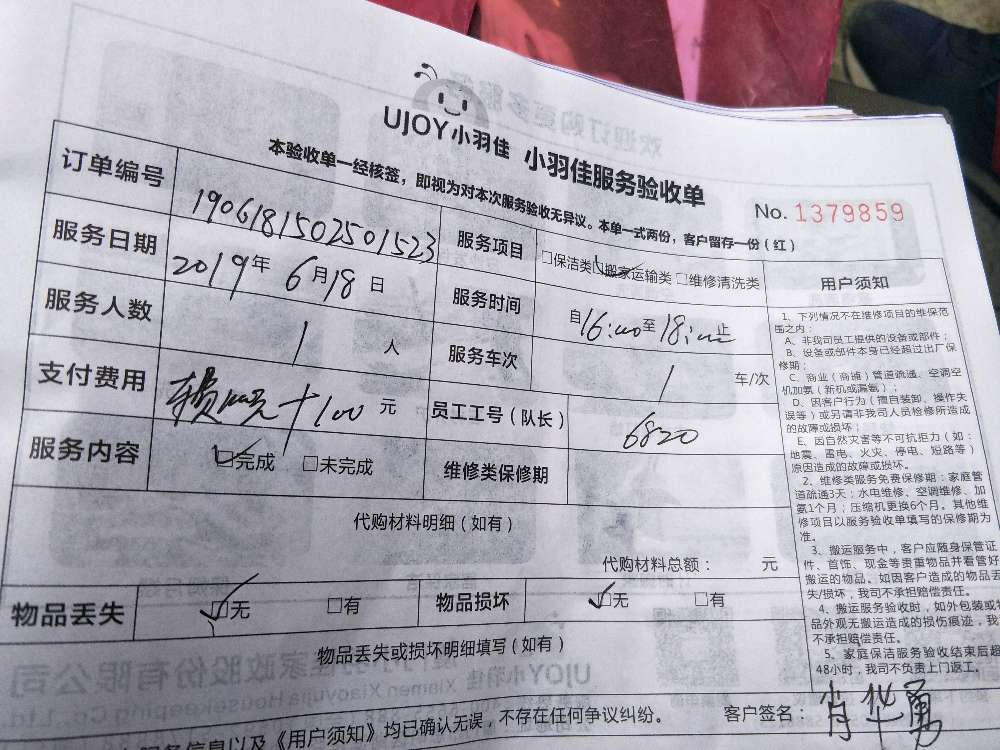 UJOY小羽佳 小羽佳服务验收单
本验收单一经核签，即视为对本次服务验收无异议。本单一式两份，客户留存一份（红）
No. 1379859
订单编号 1906181502501523 服务项目 □保洁类 ☑搬家运输类 □维修清洗类
服务日期 2019年6月18日 服务时间 自16:00至18:00止
服务人数 1 人 服务车次 1 车/次
支付费用 +100 元 员工工号（队长） 6820
服务内容 ☑完成 □未完成 维修类保修期
代购材料明细（如有）
代购材料总额： 元
物品丢失 ☑无 □有 物品损坏 ☑无 □有
物品丢失或损坏明细填写（如有）
服务信息以及《用户须知》均已确认无误，不存在任何争议纠纷。 客户签名：肖华勇
用户须知
1、下列情况不在维修项目的维保范
围之内：
A、非我司员工提供的设备或部件；
B、设备或部件本身已经超过出厂保
修期；
C、商业（商铺）管道疏通、空调空
机加氨（新机或漏氨）；
D、因客户行为（擅自装卸、操作失
误等）或另请非我司人员检修所造成
的故障或损坏；
E、因自然灾害等不可抗拒力（如：
地震、雷电、火灾、停电、短路等）
原因造成的故障或损坏。
2、维修类服务免费保修期：家庭管
道疏通3天；水电维修、空调维修、加
氨1个月；压缩机更换6个月。其他维
修项目以服务验收单填写的保修期为
准。
3、搬运服务中，客户应随身保管证
件、首饰、现金等贵重物品并看管好
搬运的物品。如因客户造成的物品丢
失/损坏，我司不承担赔偿责任。
4、搬运服务验收时，如外包装或物
品外观无搬运造成的损伤痕迹，我
不承担赔偿责任。
5、家庭保洁服务验收结束后超
48小时，我司不负责上门返工。